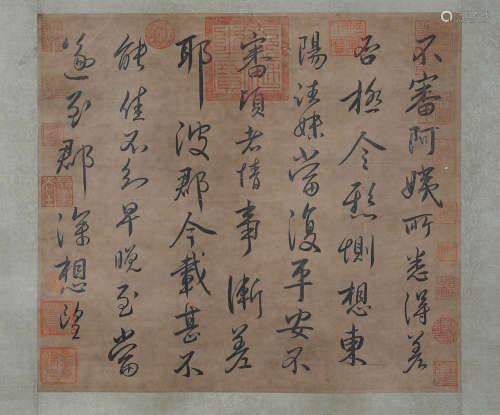 不審阿姨所患得差
否極令懸惻想東
陽諸妹當復平安不
審頃者情事漸差
耶彼郡今載甚不
能佳不知早晚至當
遂至郡深想望